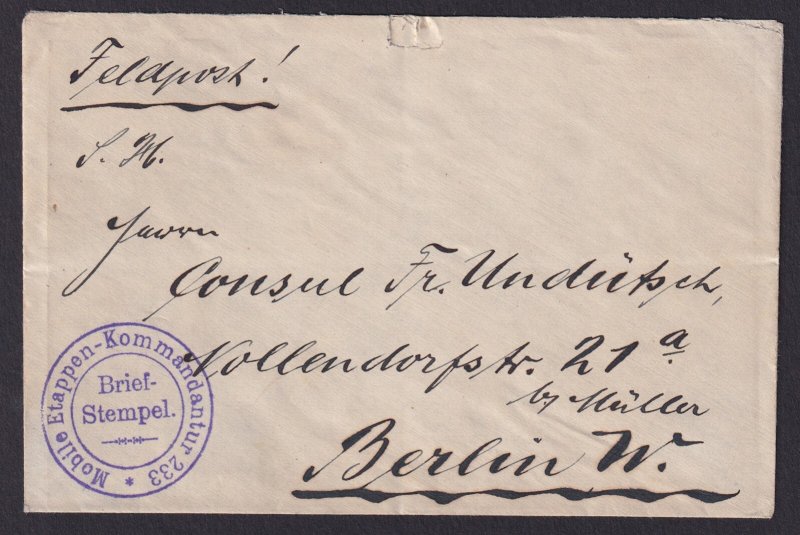 Feldpost!
S. H.
Herrn
Consul Fr. Undütsch,
Nollendorfstr. 21 a
by Müller
Berlin W.
Mobile Etappen-Kommandantur 233 *
Brief-
Stempel.